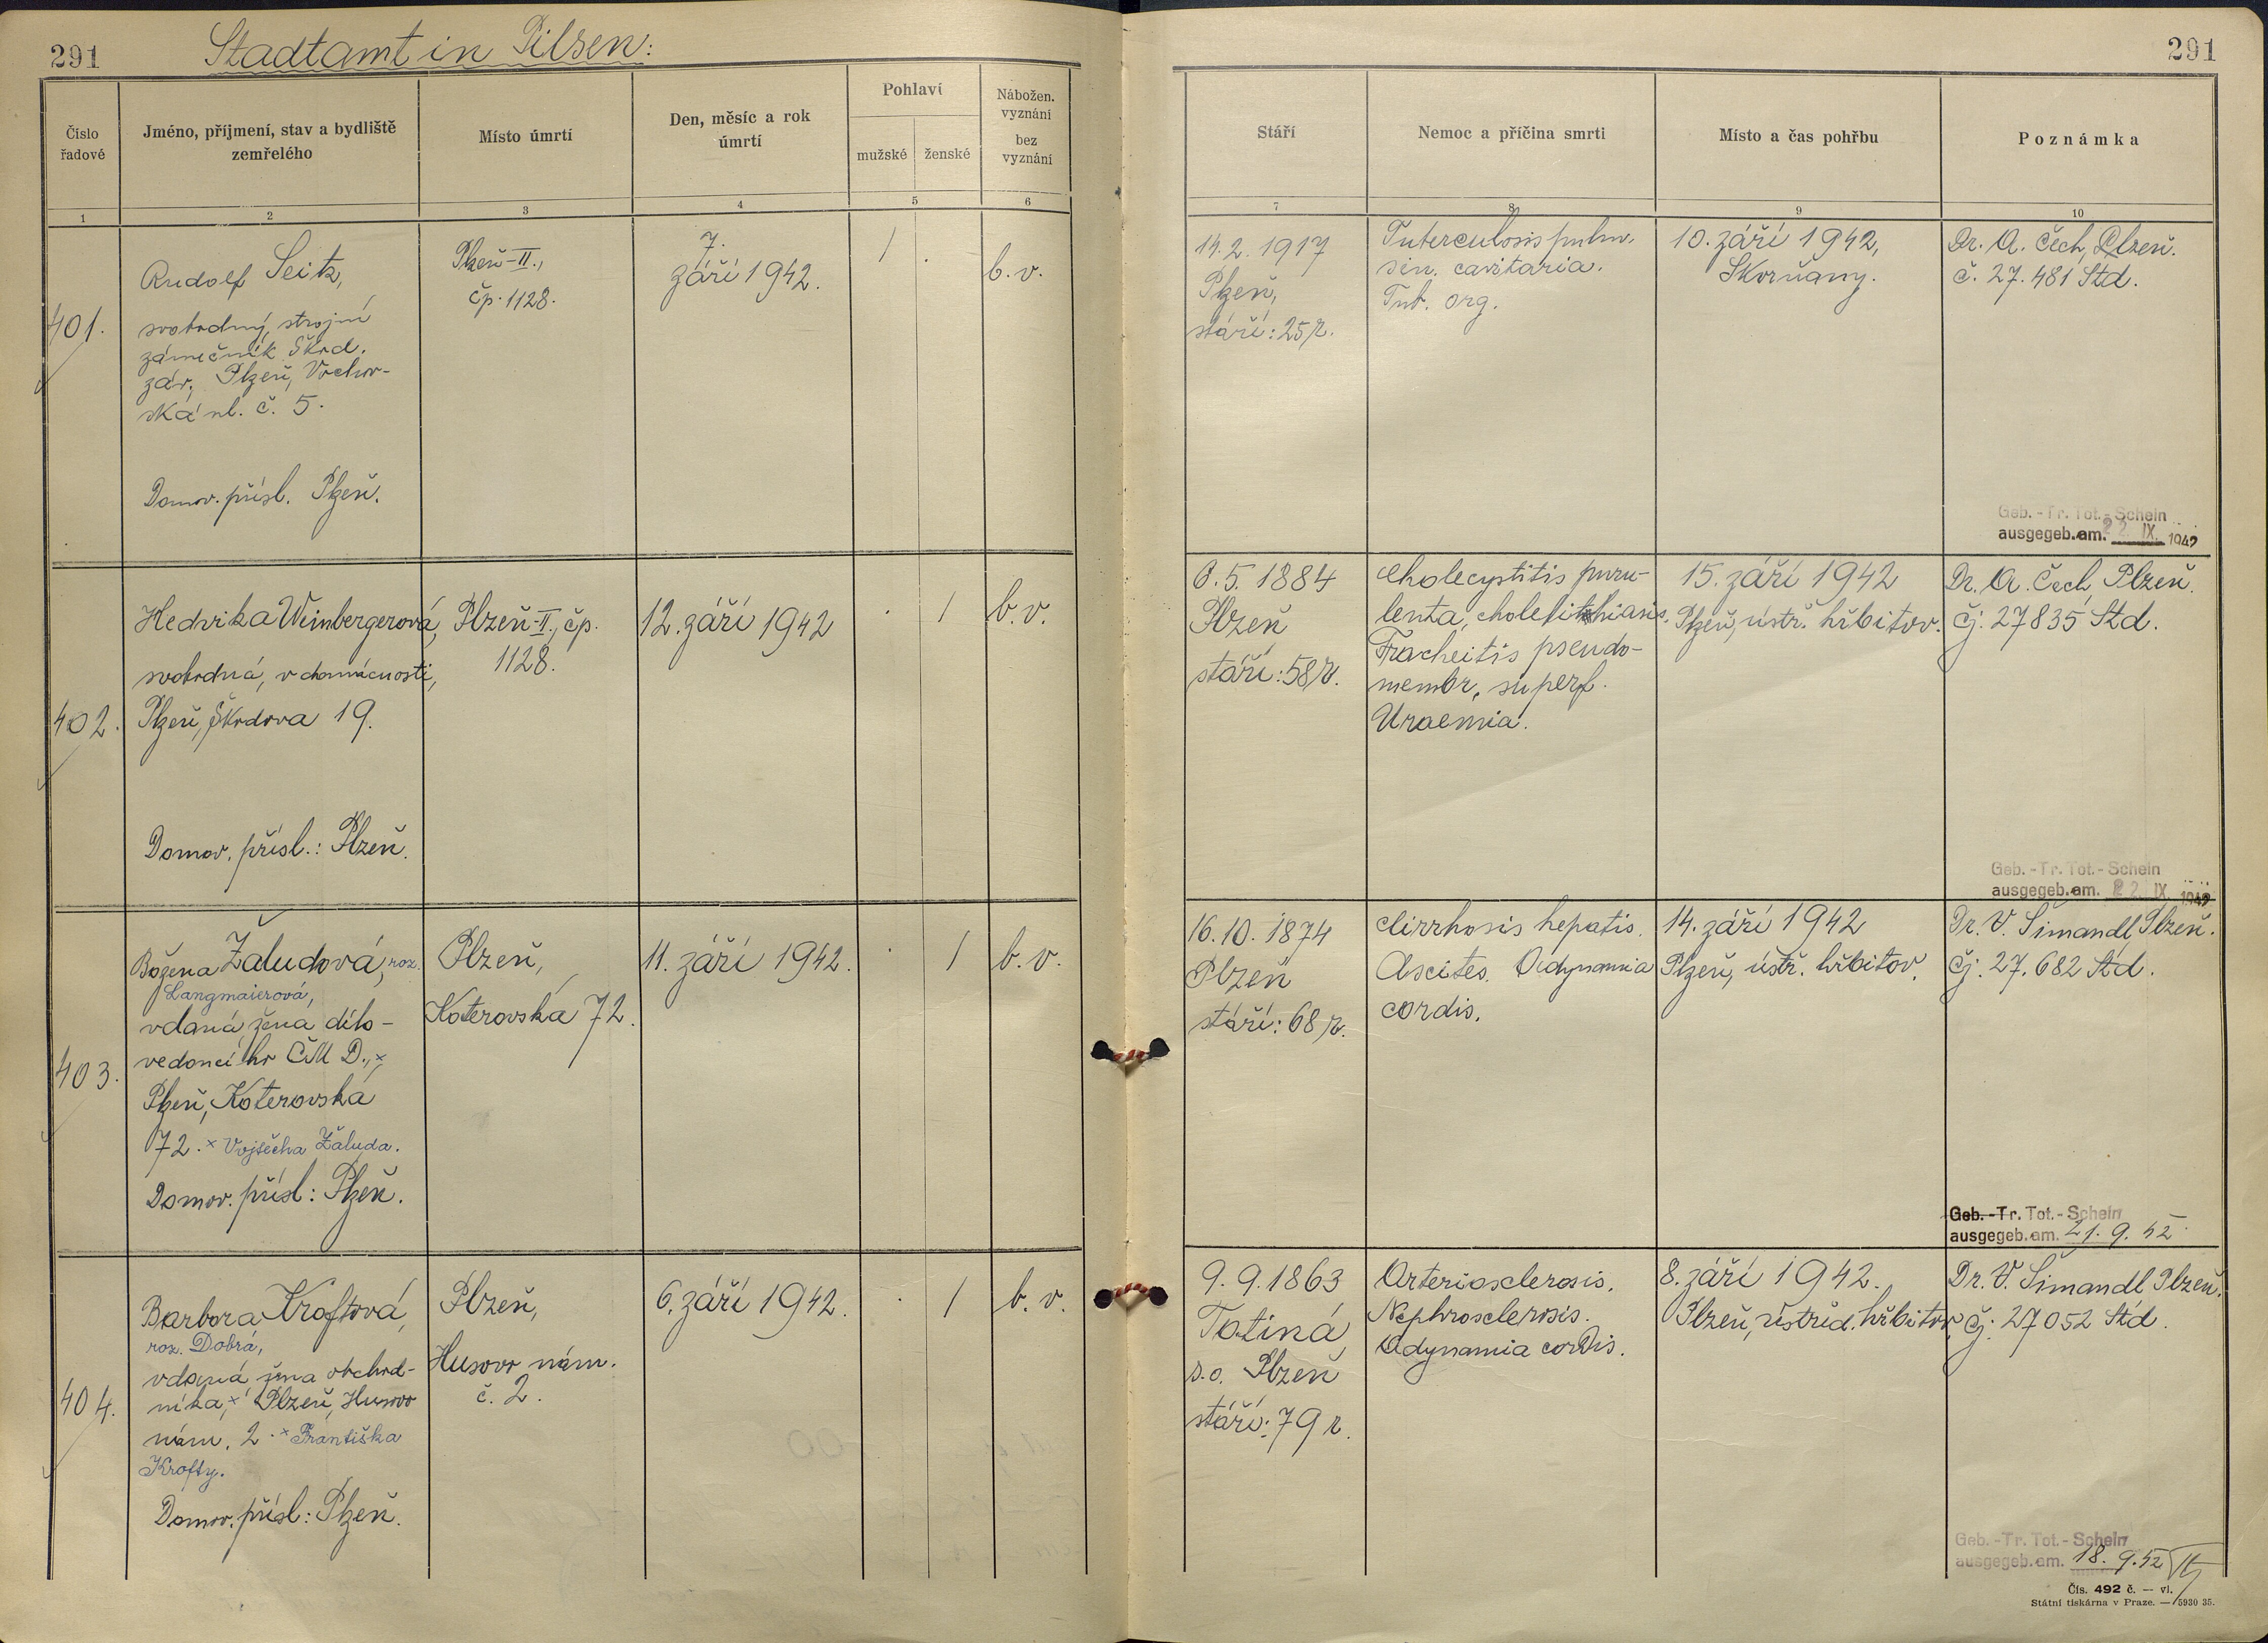 291
Stadtamt in Pilsen:
291
Číslo
řadové
Jméno, příjmení, stav a bydliště
zemřelého
Místo úmrtí
Den, měsíc a rok
úmrtí
Pohlaví
mužské
ženské
Nábožen.
vyznání
bez
vyznání
Stáří
Nemoc a příčina smrti
Místo a čas pohřbu
Poznámka
1
2
3
4
5
6
7
8
9
10
401.
Rudolf Seitz,
svobodný, strojní
zámečník Škod.
záv., Plzeň, Vochov-
ská ul. č. 5.
Domov. přísl. Plzeň.
Plzeň-II.,
čp. 1128.
7.
září 1942.
/
.
b.v.
14.2.1917
Plzeň,
stáří: 25 r.
Tuberculosis pulm.
sin. cavitaria.
Tub. org.
10. září 1942,
Skvrňany.
Dr. A. Čech, Plzeň.
č. 27.481 Std.
Geb.-Tr. Tot.-Schein
ausgegeb. am. 22. IX. 1942
402.
Hedvika Weinbergerová,
svobodná, v domácnosti,
Plzeň, Škodova 19.
Domov. přísl.: Plzeň.
Plzeň-II, čp.
1128.
12. září 1942
.
/
b.v.
6.5.1884
Plzeň
stáří: 58 r.
Cholecystitis puru-
lenta, cholelithiasis.
Tracheitis pseudo-
membr. superf.
Uraemia.
15. září 1942
Plzeň, ústř. hřbitov.
Dr. A. Čech, Plzeň.
Čj. 27835 Std.
Geb.-Tr. Tot.-Schein
ausgegeb. am. 22. IX. 1942
403.
Božena Žaludová, roz.
Langmaierová,
vdaná, žena dílo-
vedoucího ČMD.,×
Plzeň, Koterovská
72. × Vojtěcha Žaluda.
Domov. přísl: Plzeň.
Plzeň,
Koterovská 72.
11. září 1942.
.
/
b.v.
16.10.1874
Plzeň
stáří: 68 r.
Cirrhosis hepatis.
Ascites. Adynamia
cordis.
14. září 1942
Plzeň, ústř. hřbitov.
Dr. V. Šimandl, Plzeň.
Čj. 27.682 Std.
Geb.-Tr. Tot.-Schein
ausgegeb. am. 21. 9. 42
404.
Barbora Kroftová,
roz. Dobrá,
vdaná žena obchod-
níka,× Plzeň, Husovo
nám. 2. × Františka
Krofty.
Domov. přísl: Plzeň.
Plzeň,
Husovo nám.
č. 2.
6. září 1942.
.
/
b.v.
9.9.1863
Tatiná
s.o. Plzeň
stáří: 79 r.
Arteriosclerosis.
Nephrosclerosis.
Adynamia cordis.
8. září 1942.
Plzeň, ústřed. hřbitov
Dr. V. Šimandl Plzeň.
Čj. 27052 Std.
Geb.-Tr. Tot.-Schein
ausgegeb. am. 18. 9. 42
Čís. 492 č. — vl.
Státní tiskárna v Praze. — 5930 35.